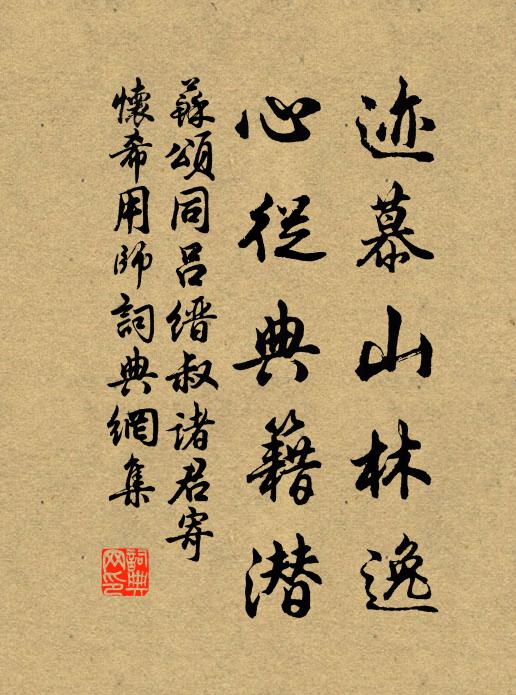 迹慕山林逸
心從典籍潜
蘇頌同呂缙叔诸君寄
懷希用師詞典網集
詞典
网印